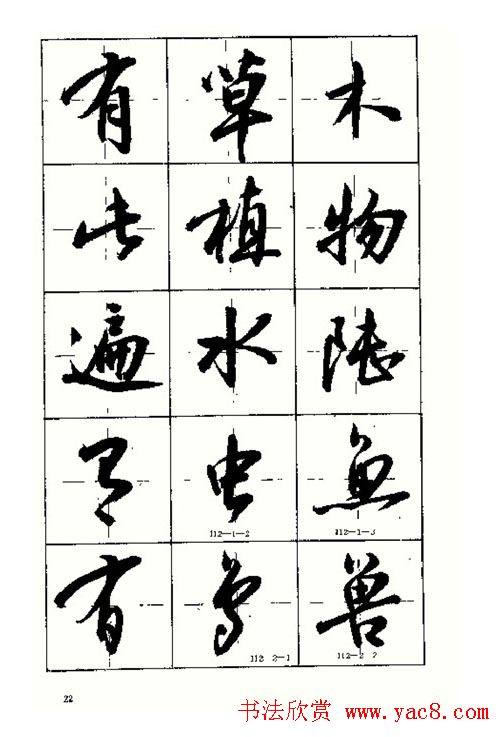 有草木
此植物
遍水陸
有虫魚
112—1—2 112—1—3
有鸟兽
112—2—1 112—2—2
22
书法欣赏 www.yac8.com